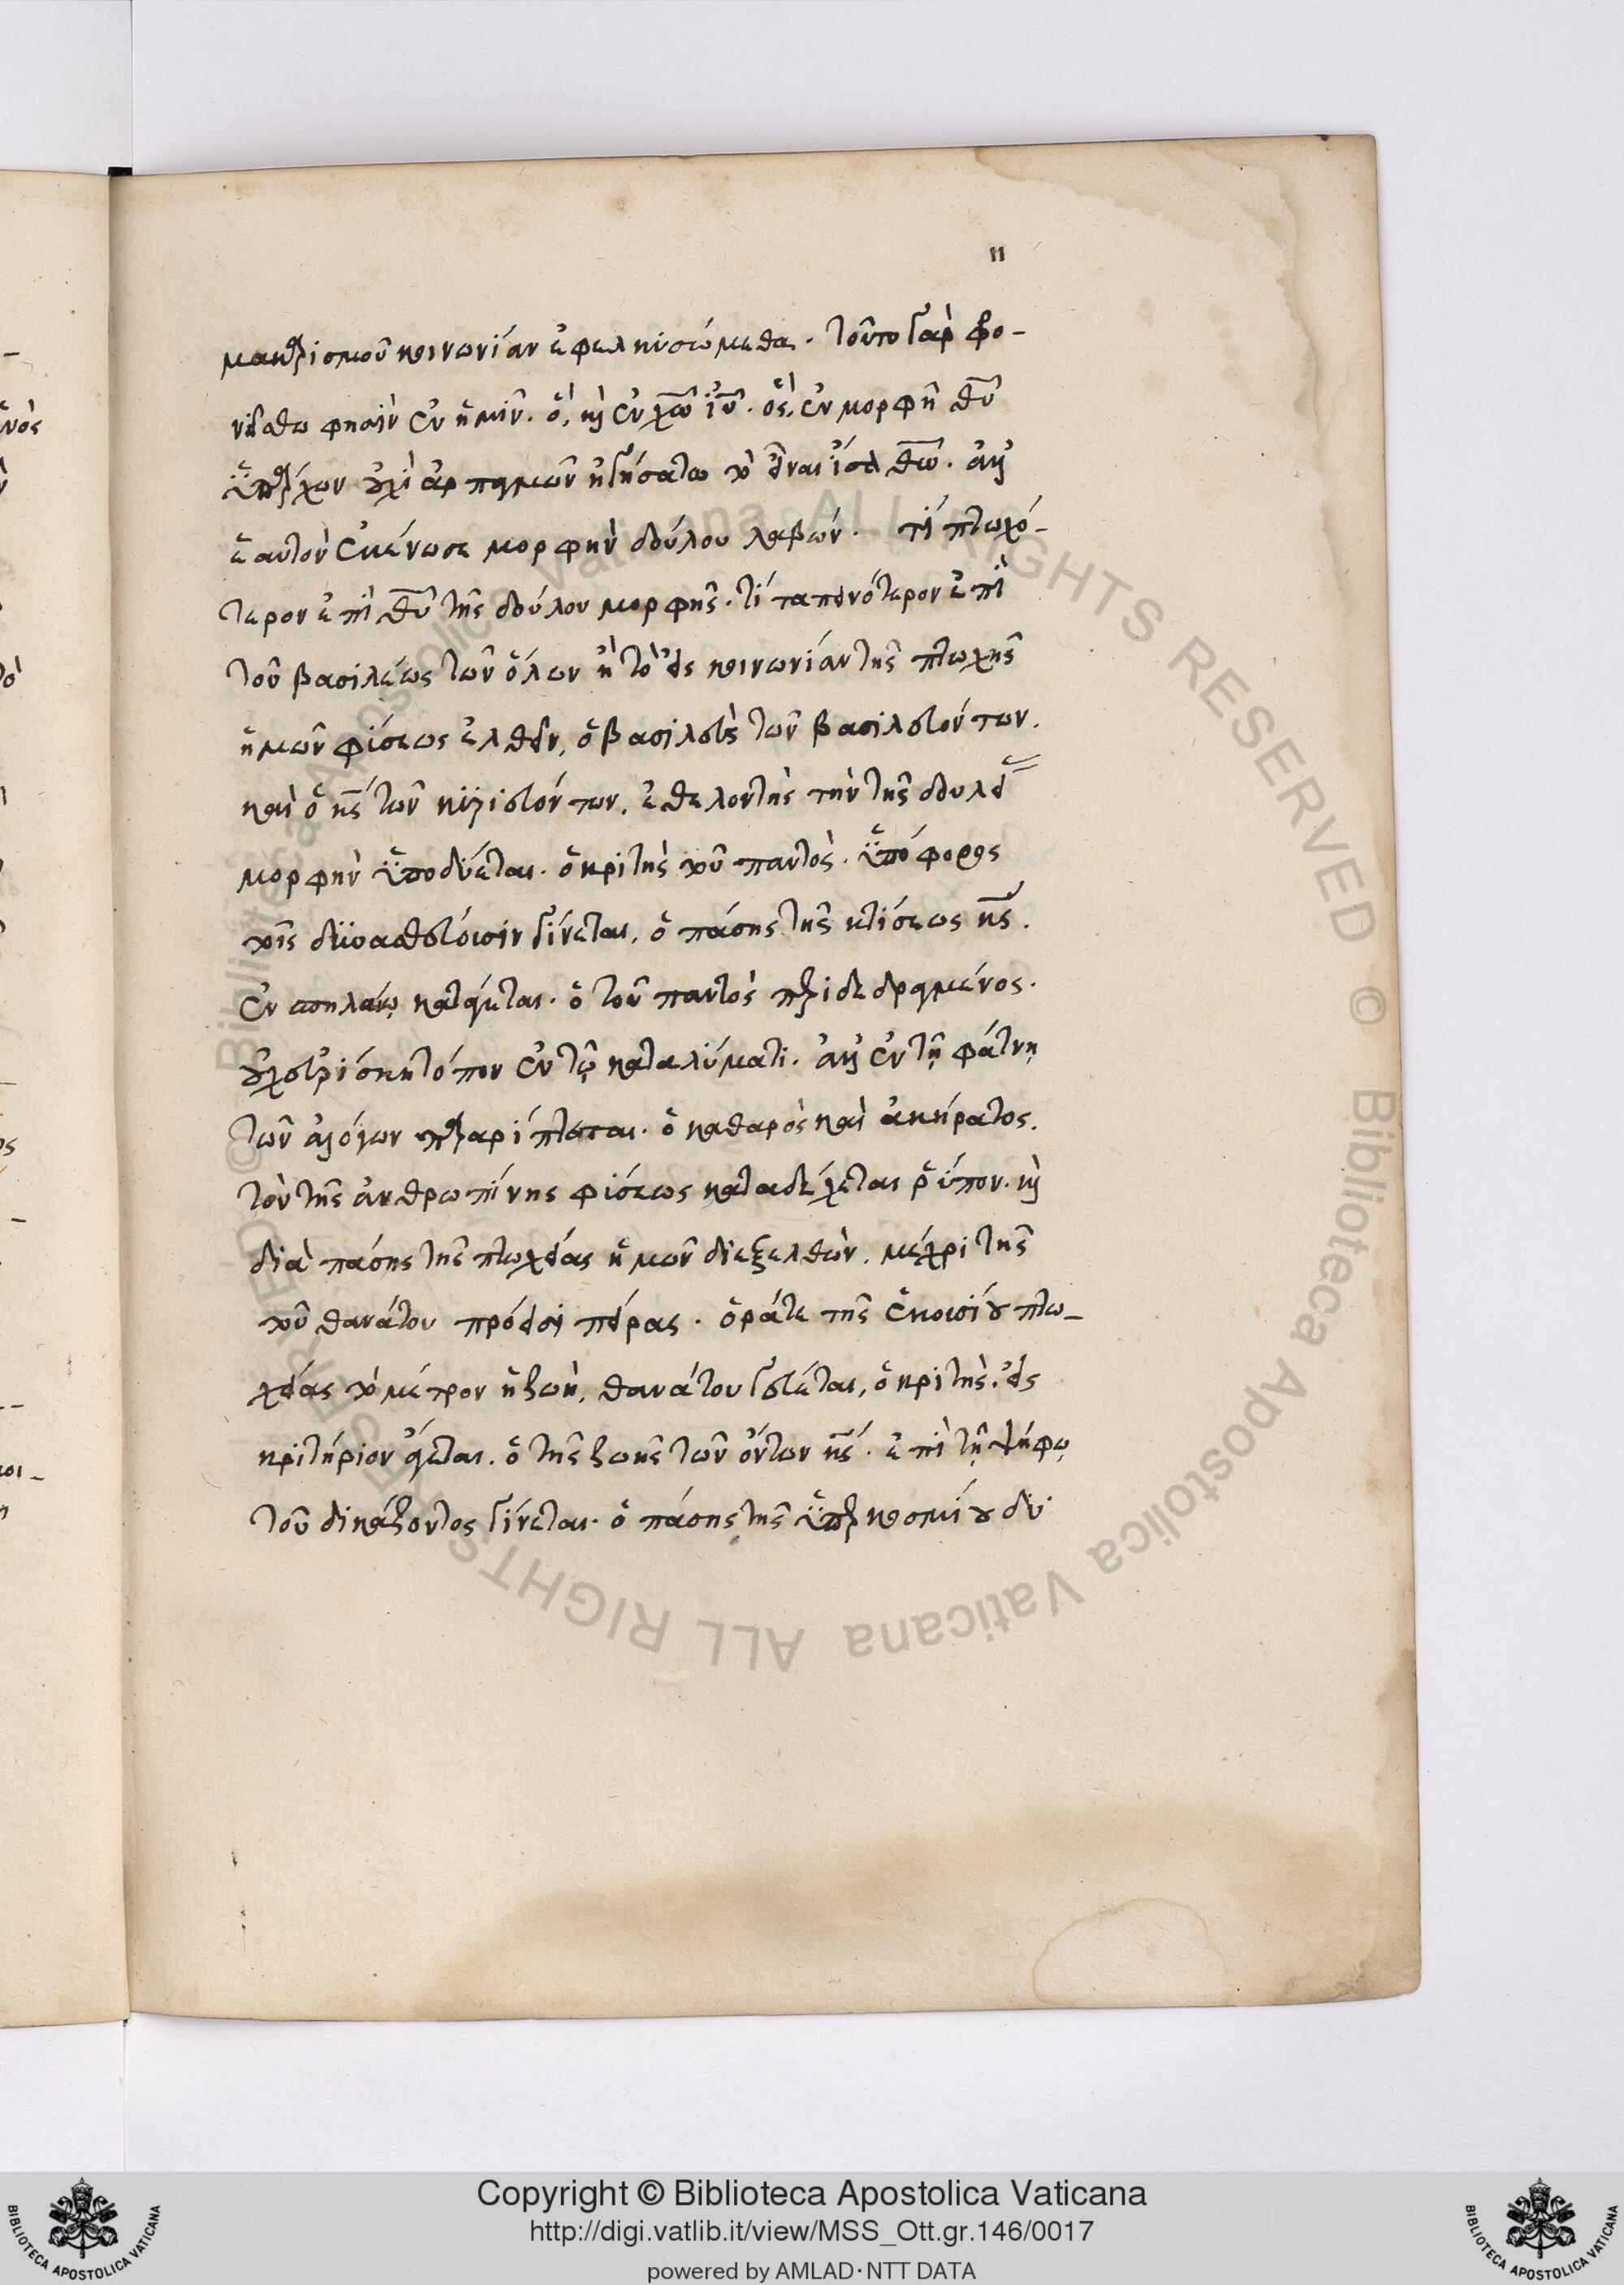 11
μακαρισμοῦ κοινωνίαν ἐφελκυσώμεθα. τοῦτο γὰρ φρο-
νείσθω φησὶν ἐν ἡμῖν. ὃ, κ(αὶ) ἐν χῶ ιῦ. ὃς, ἐν μορφῆ θῦ
ὑπάρχων οὐχὶ ἁρπαγμὸν ἡγήσατο τὸ εἶναι ἴσα θῶ. ἀλλ'
ἑαυτὸν ἐκένωσε μορφὴν δούλου λαβών. τί πτωχό-
τερον ἐπὶ θῦ τῆς δούλου μορφῆς. τί ταπεινότερον ἐπὶ
τοῦ βασιλέως τῶν ὅλων ἢ τὸ εἰς κοινωνίαν τῆς πτωχῆς
ἡμῶν φύσεως ἐλθεῖν, ὁ βασιλεὺς τῶν βασιλευόντων.
καὶ ὁ κς τῶν κυριευόντων, ἐθελοντὴς τὴν τῆς δουλεί(ας)
μορφὴν ὑποδύεται. ὁ κριτὴς τοῦ παντὸς. ὑπόφορος
τοῖς δυναστεύουσιν γίνεται, ὁ πάσης τῆς κτίσεως κς.
ἐν σπηλαίω κατάγεται. ὁ τοῦ παντὸς περιδεδραγμένος.
οὐχ εὑρίσκει τόπον ἐν τῷ καταλύματι. ἀλλ' ἐν τῇ φάτνῃ
τῶν ἀλόγων παραρίπτεται. ὁ καθαρὸς καὶ ἀκήρατος.
τὸν τῆς ἀνθρωπίνης φύσεως καταδέχεται ῥύπον. κ(αὶ)
διὰ πάσης τῆς πτωχείας ἡμῶν διεξελθὼν. μέχρι τῆς
τοῦ θανάτου πρόεισι πείρας. ὁρᾶτε τῆς ἑκουσίου πτω-
χείας τὸ μέτρον ἡ ζωὴ, θανάτου γεύεται, ὁ κριτὴς. εἰς
κριτήριον ἄγεται. ὁ τῆς ζωῆς τῶν ὄντων κς. ἐπὶ τῇ ψήφῳ
τοῦ δικάζοντος γίνεται. ὁ πάσης τῆς ὑπερκοσμίου δυ
Copyright © Biblioteca Apostolica Vaticana
http://digi.vatlib.it/view/MSS_Ott.gr.146/0017
powered by AMLAD·NTT DATA